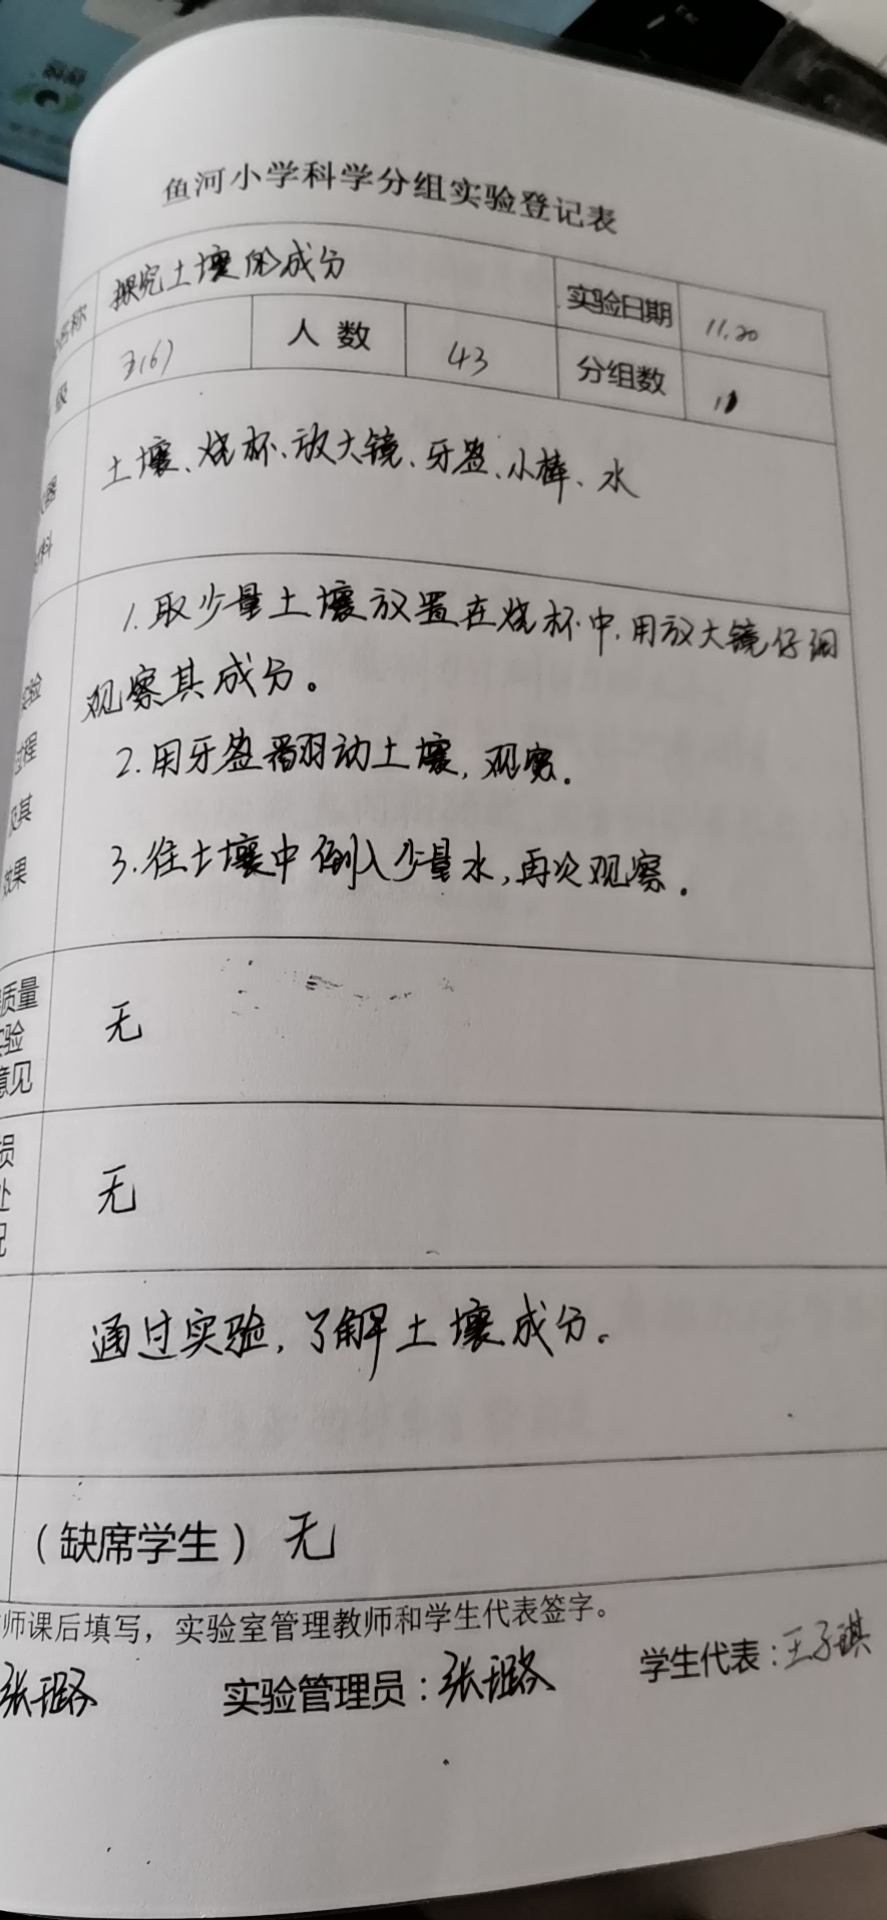 鱼河小学科学分组实验登记表
名称 探究土壤的成分 实验日期 11.20
级 3(6) 人数 43 分组数
器 土壤、烧杯、放大镜、牙签、小棒、水
料
1.取少量土壤放置在烧杯中,用放大镜仔细
实验 观察其成分。
过程 2.用牙签翻动土壤,观察.
及其
效果 3.往土壤中倒入少量水,再次观察.
质量
实验 无
意见
损
处 无
况
通过实验,了解土壤成分。
(缺席学生) 无
师课后填写,实验室管理教师和学生代表签字。
张璐 实验管理员:张璐 学生代表:王子琪